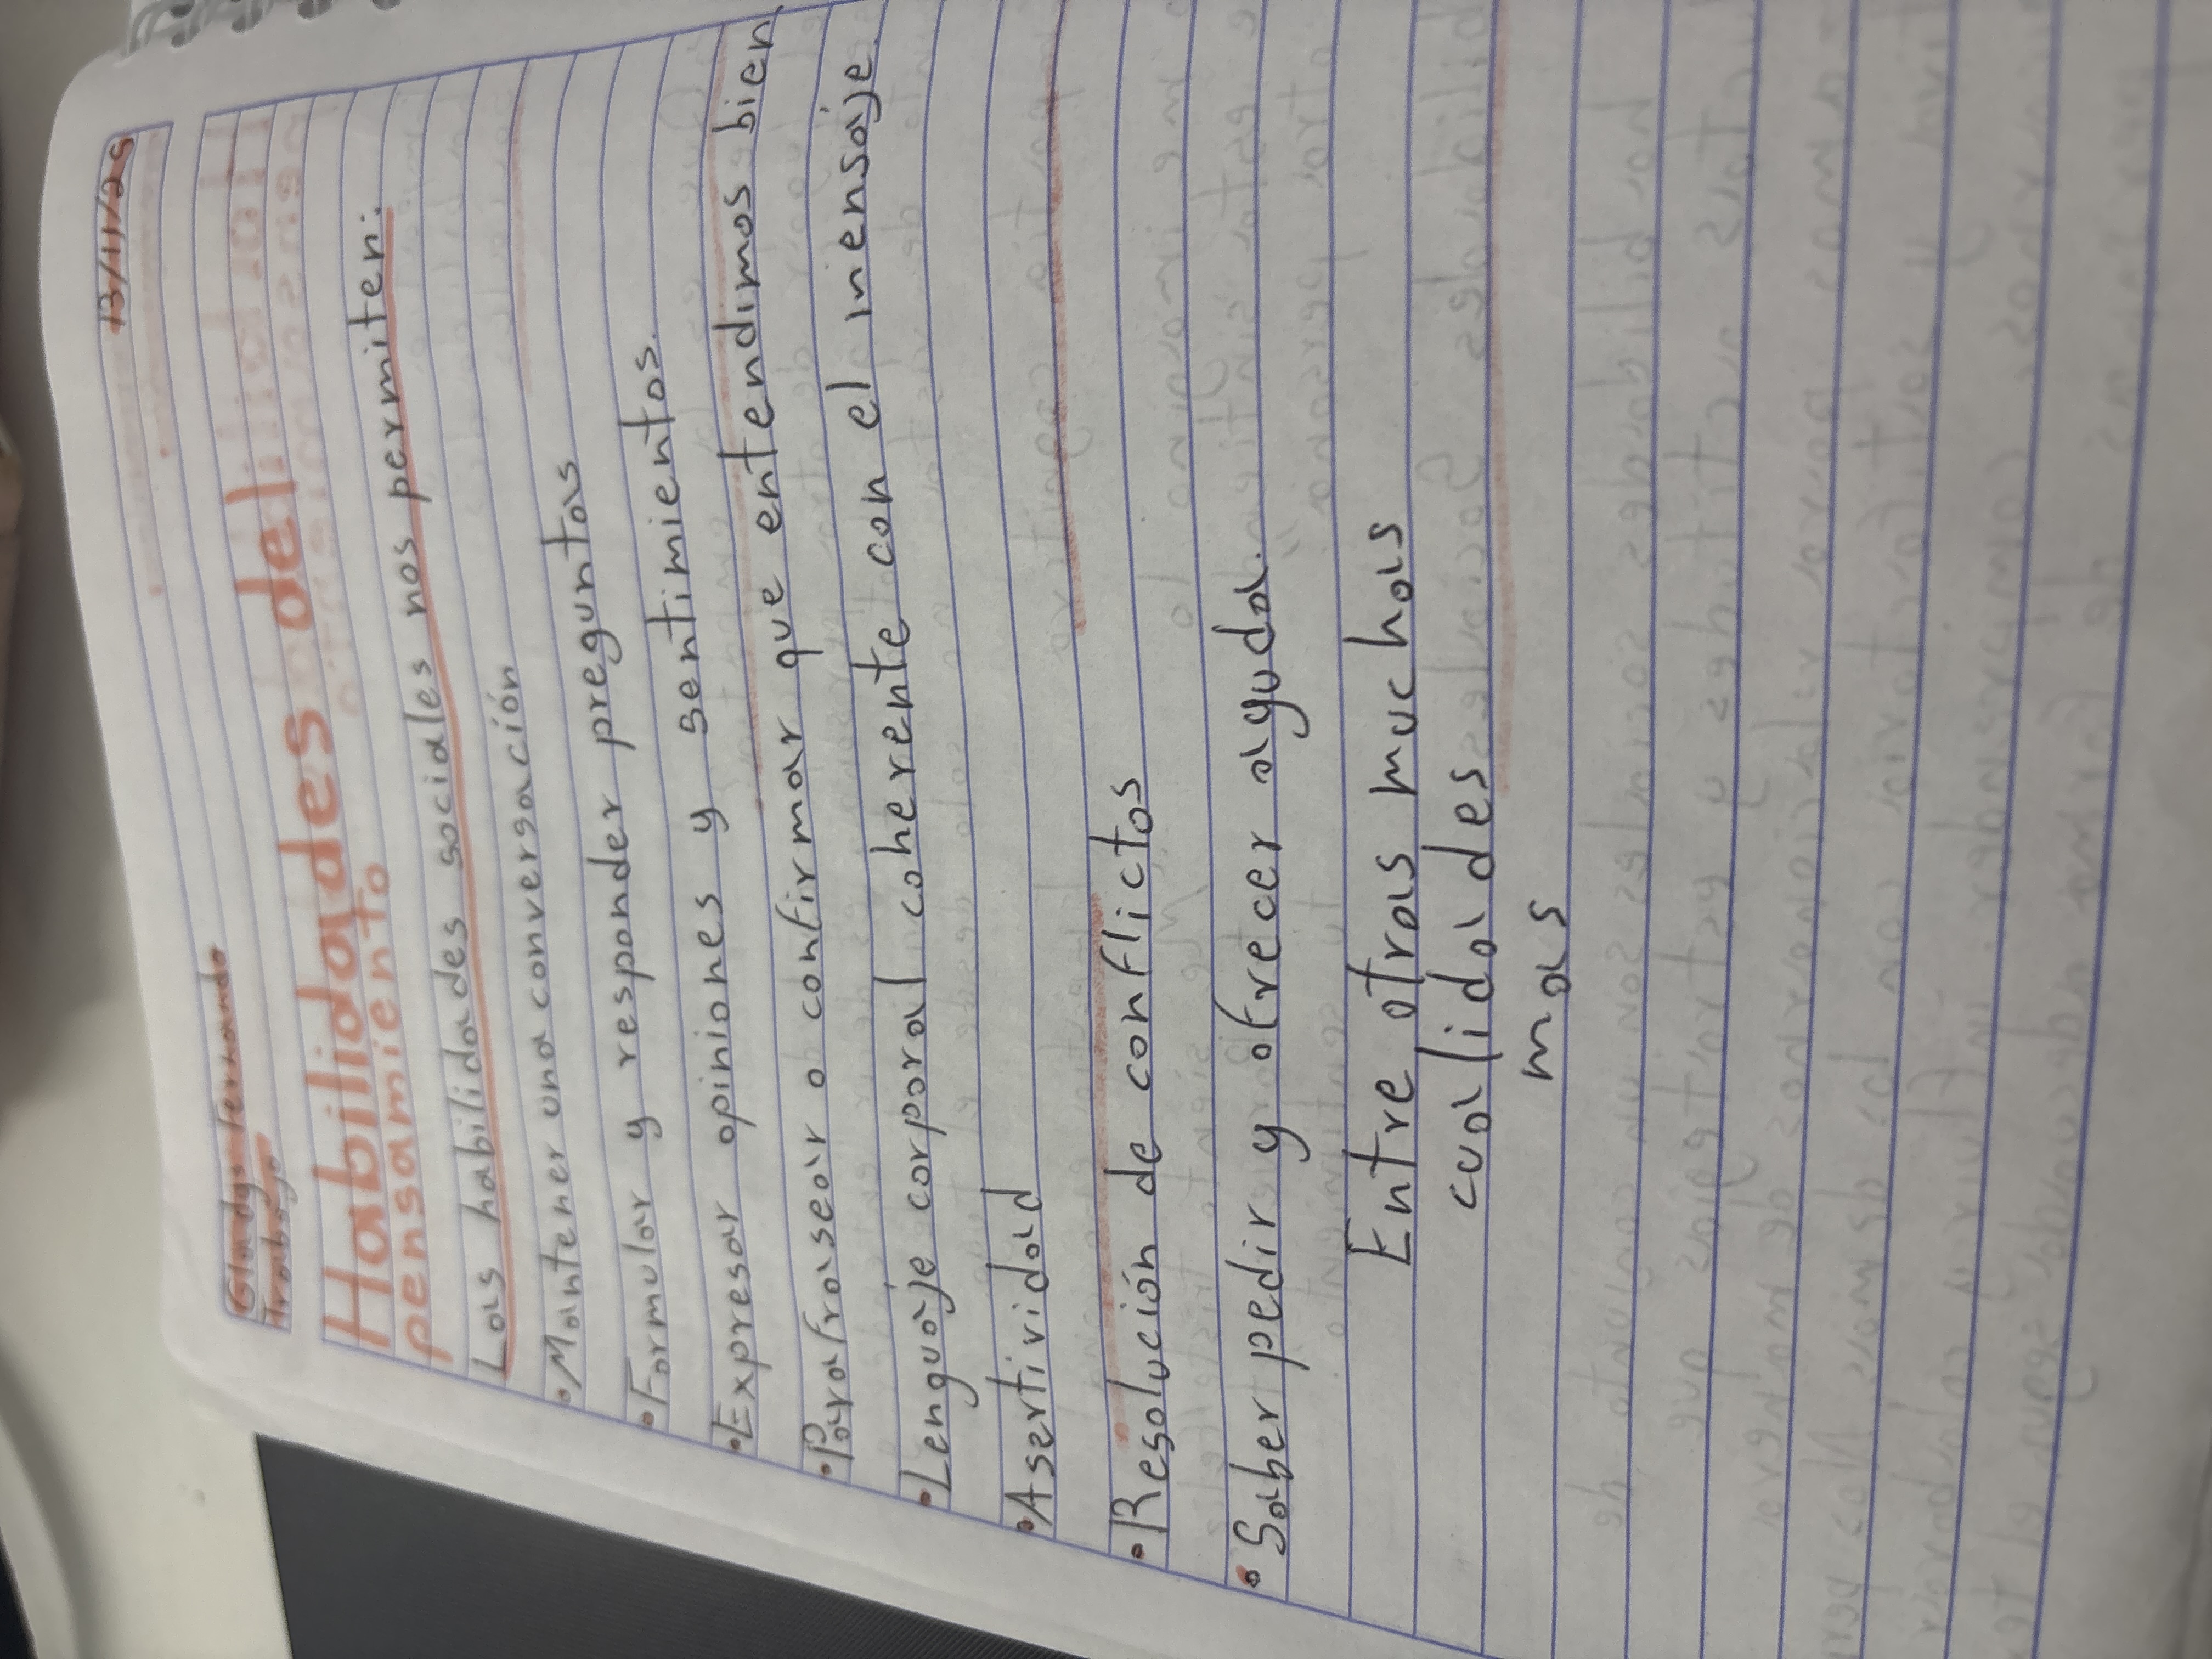 13/11/25
Gladys Fernando
Trabajo
Habilidades del
pensamiento
Las habilidades sociales nos permiten:
• Mantener una conversación
• Formular y responder preguntas
• Expresar opiniones y sentimientos.
• Parafrasear o confirmar que entendimos bien
• Lenguaje corporal coherente con el mensaje.
• Asertividad
• Resolución de conflictos
• Saber pedir y ofrecer ayuda.
Entre otras muchas
cualidades
mas